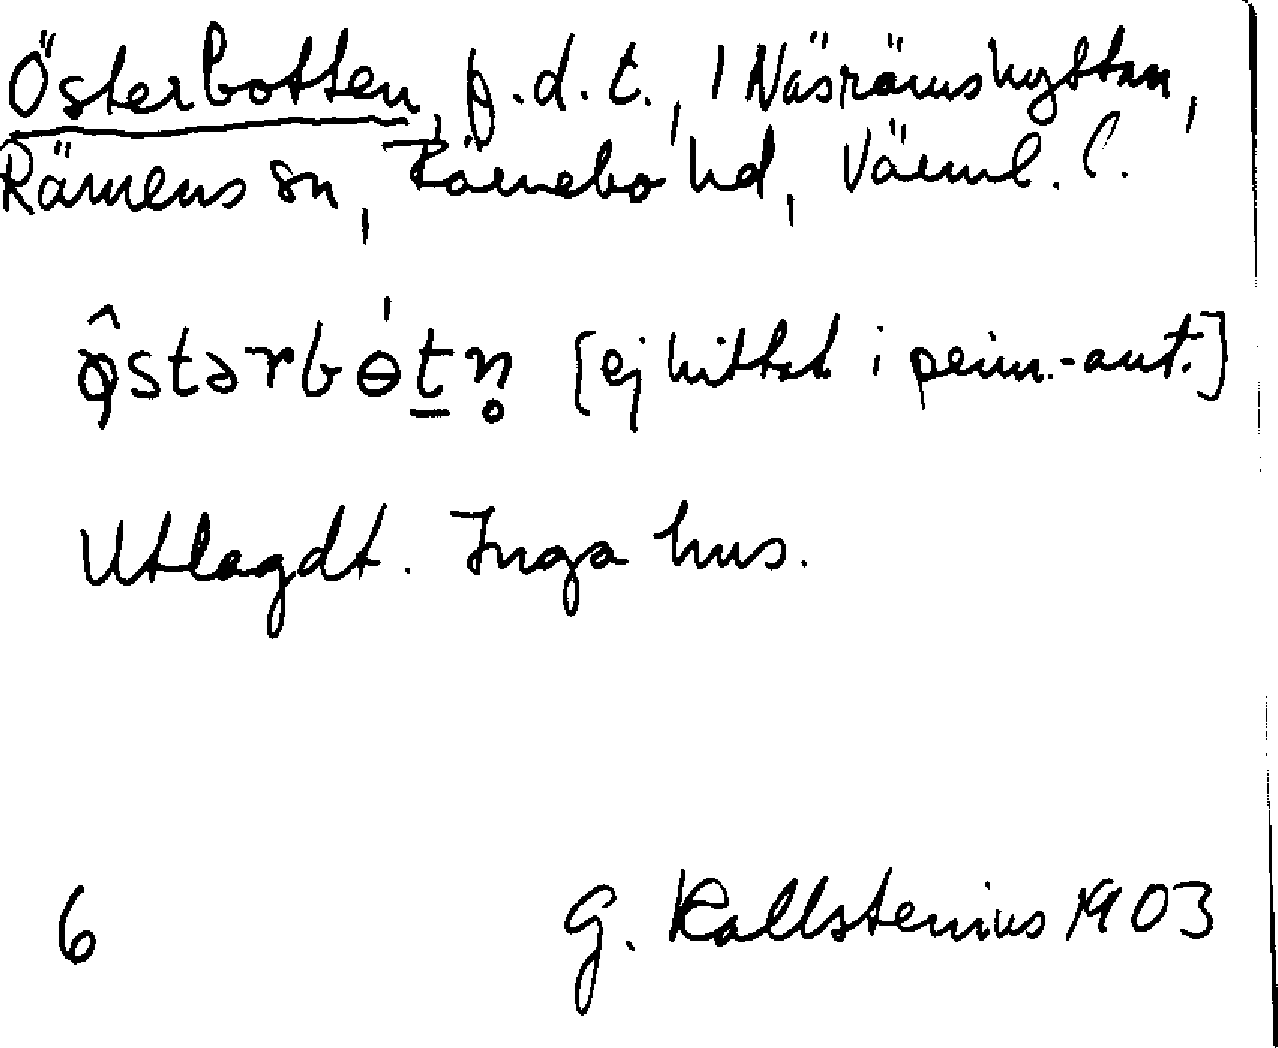 Österbotten, f.d. t., 1 Näsrämshyttan,
Rämens sn, Färnebo hd, Värml. l.
ö̂stərbɵ́tn̥ [ej hittat i prim.-ant.]
Utlagdt. Inga hus.
6 G. Kallstenius 1903